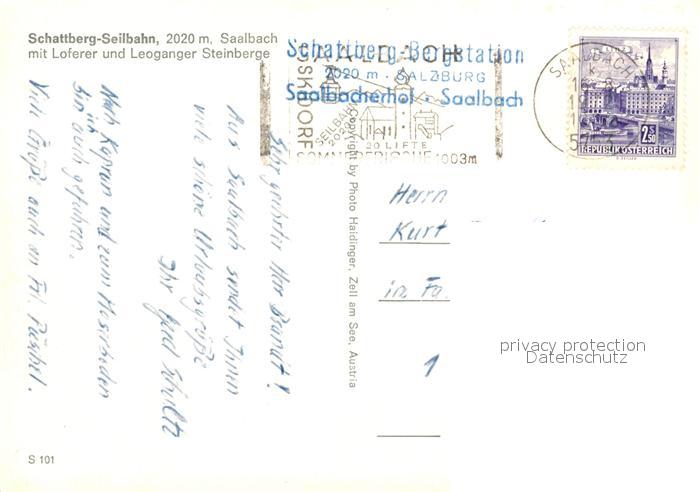 Schattberg-Seilbahn, 2020 m, Saalbach
mit Loferer und Leoganger Steinberge
Schattberg-Bergstation
2020 m · SALZBURG
Saalbacherhof · Saalbach
SAALBACH
SKIDORF
SEILBAHN
2020
20 LIFTE
SOMMERFRISCHE 1003m
SAALBACH
2 S 50
REPUBLIK ÖSTERREICH
Sehr geehrter Herr Brandt!
Aus Saalbach sendet Ihnen
viele schöne Urlaubsgrüße
Ihr Gerd Schultz
Nach Kaprun und zum Moserboden
bin ich auch gefahren.
Viele Grüße auch an Frl.
Copyright by Photo Haidinger, Zell am See, Austria
Herrn
Kurt
in Fa.
1
privacy protection
Datenschutz
S 101